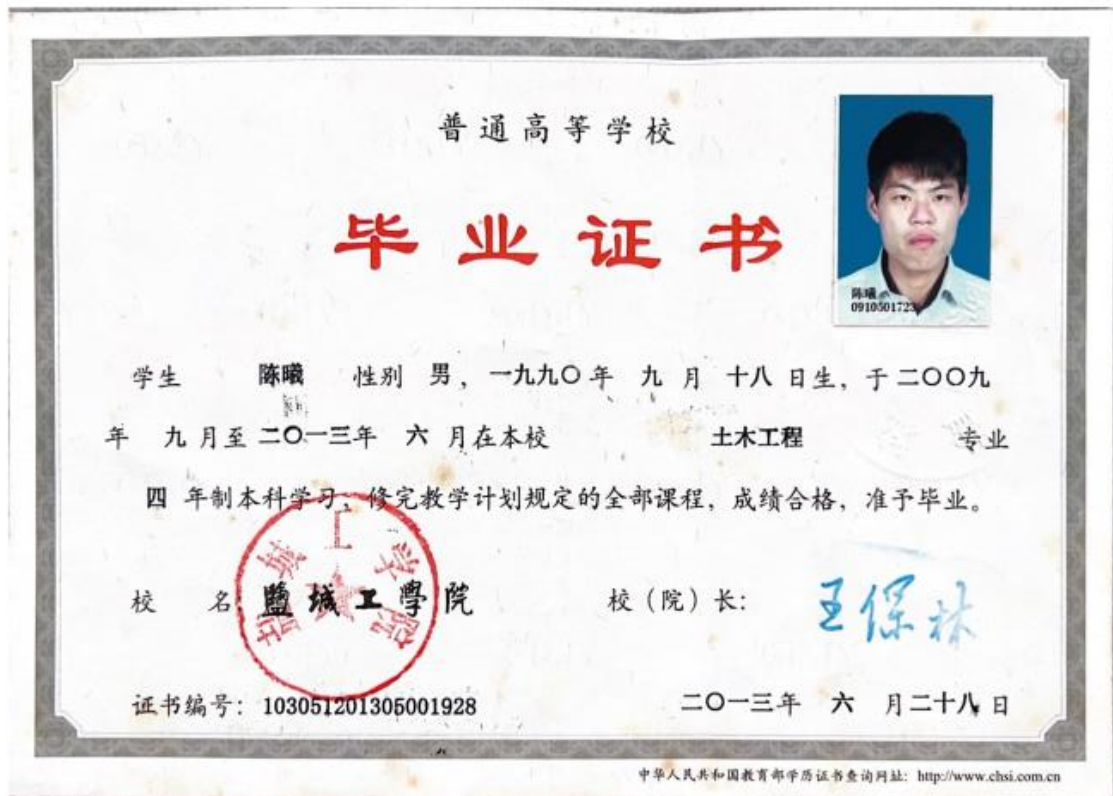 普通高等学校
毕业证书
陈曦
0910501723
学生 陈曦 性别 男，一九九〇年 九 月 十八 日生，于二〇〇九
年 九 月至二〇一三年 六 月在本校 土木工程 专业
四 年制本科学习，修完教学计划规定的全部课程，成绩合格，准予毕业。
盐城工学院
校 名：鹽城工學院 校（院）长：王保林
证书编号：103051201305001928 二〇一三年 六 月二十八日
中华人民共和国教育部学历证书查询网址：http://www.chsi.com.cn